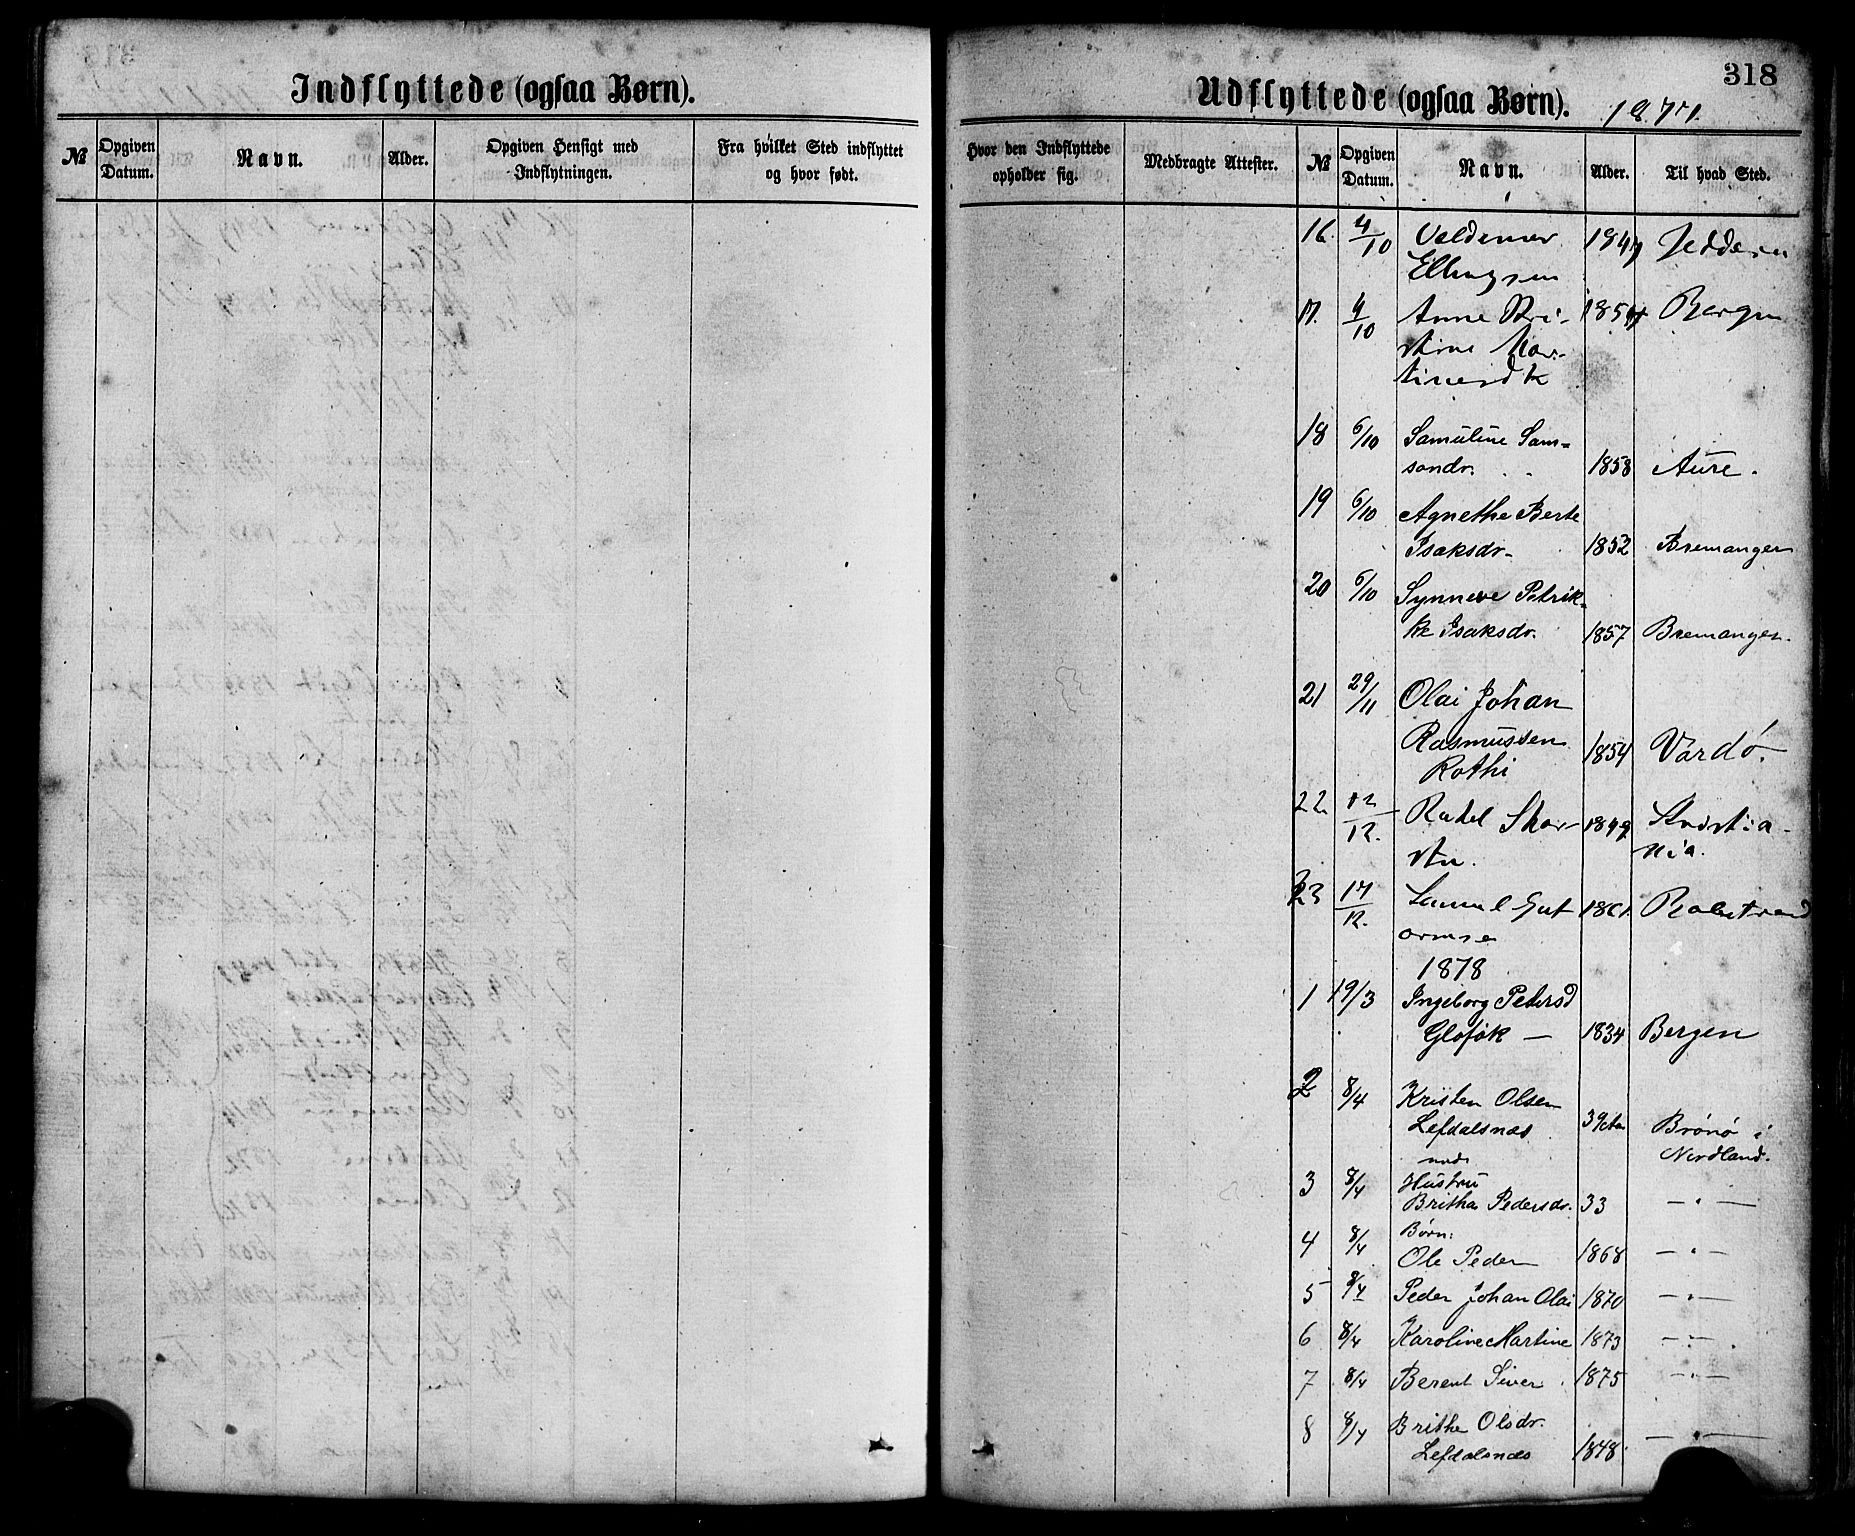 Indflyttede (ogsaa Børn).
№ Opgiven Datum. Navn. Alder. Opgiven Hensigt med Indflytningen. Fra hvilket Sted indflyttet og hvor født.
318
Udflyttede (ogsaa Børn). 1877.
Hvor den Indflyttede opholder sig. Medbragte Attester. № Opgiven Datum. Navn. Alder. Til hvad Sted.
16. 4/10 Valdemar
Ellingsen
17. 4/10 Anne Kri- Bergen
stine Mar-
tinesdt
18 6/10 Samuline Sam-
sondr. 1858 Aure.
19 6/10 Agnethe Berte
Isaksdr. 1852 Bremanger
20 6/10 Synneve Petrik-
ke Isaksdr. 1857 Bremanger.
21 29/11 Olai Johan
Rasmussen 1854 Vardö.
Rothi
22 12/12. Rakel Skor- 1849 Kristia-
sten. nia.
23 17/12. Samuel Gut 1861.
ormse
1878
1 19/3 Ingeborg Petersd
1834 Bergen
2 8/4 Kristen Olsen
Lefdalsnæs 39 Brønø i
Nordland.
3 8/4 Hustru
Britha Pedersdr. 33 — " —
4 8/4 Børn:
Ole Peder 1868 — " —
5 8/4 Peder Johan Olai 1870 — " —
6 8/4 Karoline Martine 1873 — " —
7 8/4 Berent Siver 1875 — " —
8 8/4 Brithe Olsdr.
Lefdalsnæs 1848. — " —